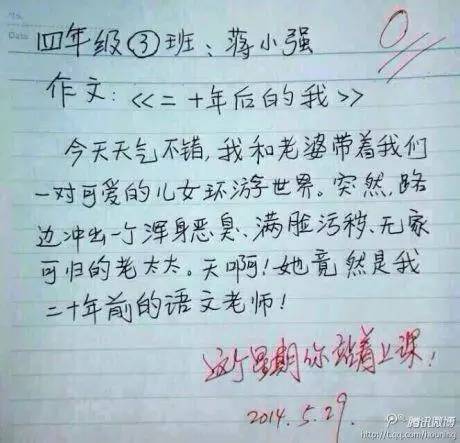 No.
Date
0
四年级③班:蒋小强
作文:《二十年后的我》
今天天气不错,我和老婆带着我们
一对可爱的儿女环游世界。突然,路
边冲出一个浑身恶臭、满脸污秽、无家
可归的老太太。天啊!她竟然是我
二十年前的语文老师!
这个星期你站着上课!
2014.5.29.
腾讯微博